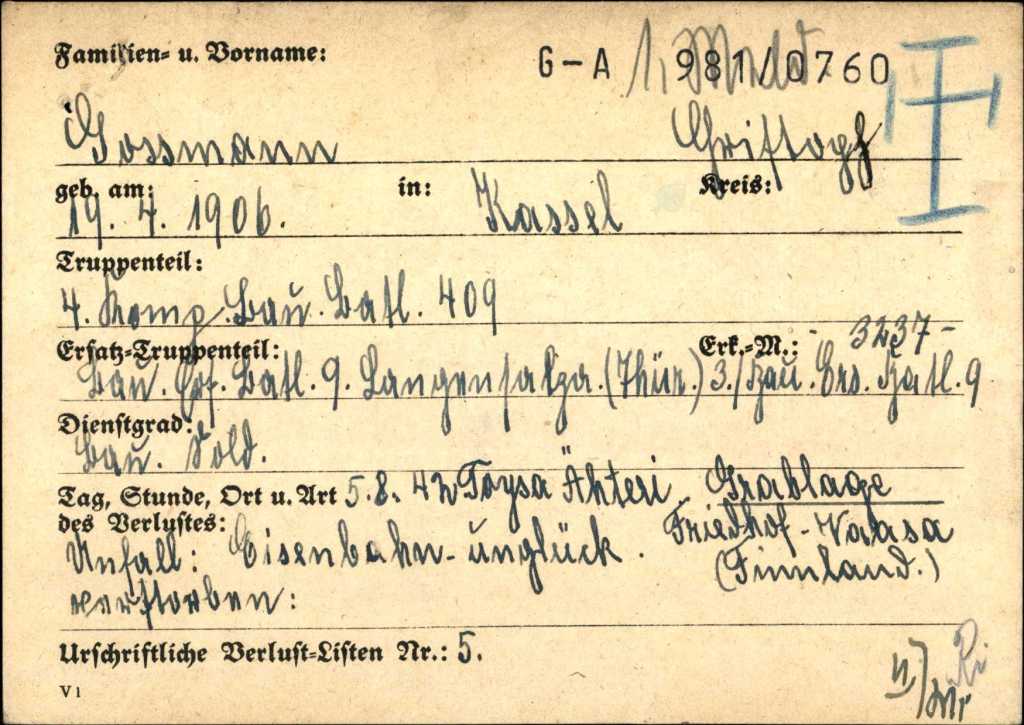 Familien= u. Vorname:
G-A 981/0760
Gossmann Christoph
geb. am: in: Kreis:
19. 4. 1906. Kassel
Truppenteil:
4. Komp. Bau. Batl. 409
Ersatz=Truppenteil: Erk.=M.: - 3237 -
Bau. Ers. Batl. 9. Langensalza. (Thür.) 3./Bau. Ers. Batl. 9
Dienstgrad:
Bau. Sold.
Tag, Stunde, Ort u. Art 5. 8. 42 Töysä Ähteri Grablage
des Verlustes: Friedhof-Vaasa
Unfall: Eisenbahn-unglück. (Finnland.)
verstorben:
Urschriftliche Verlust=Listen Nr.: 5.
V 1